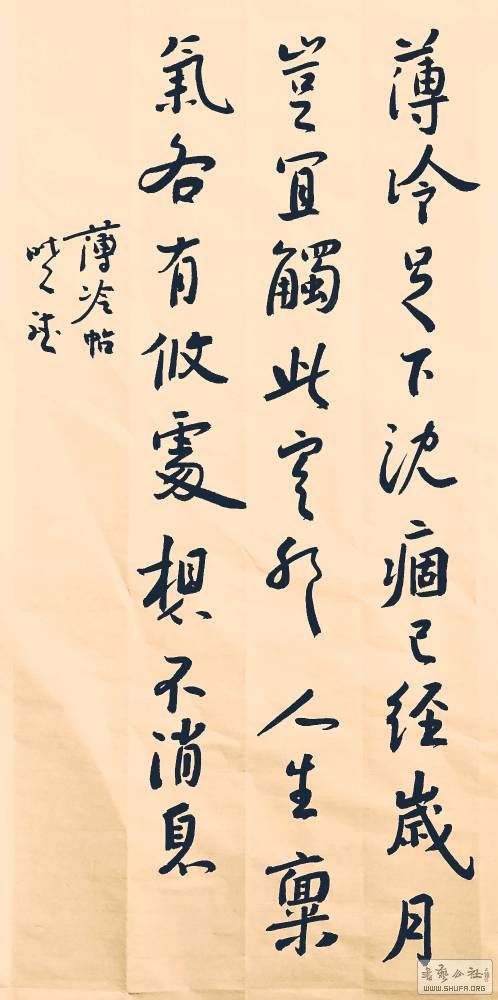 薄冷足下沈痼已經歲月
豈宜觸此寒耶人生稟
氣各有攸處想示消息
薄冷帖
WWW.SHUFA.ORG